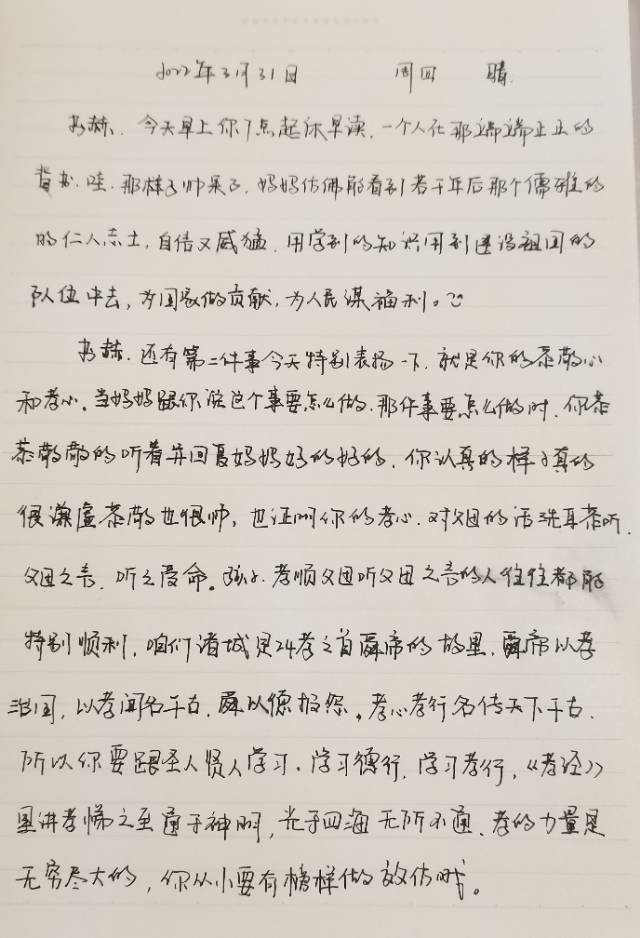 2022年3月31日 周四 晴
赫、今天早上你7点起床早读,一个人在那端端正正的
背书,哇,那样子帅呆了,妈妈仿佛能看到若干年后那个儒雅的
的仁人志士,自信又威猛,用学到的知识用到建设祖国的
队伍中去,为国家做贡献,为人民谋福利。
赫,还有第二件事今天特别表扬一下,就是你的恭敬心
和孝心。当妈妈跟你说这个事要怎么做,那件事要怎么做时,你恭
恭敬敬的听着并回复妈妈好的好的,你认真的样子真的
很谦虚恭敬也很帅,也证明你的孝心,对父母的话洗耳恭听,
父母之言,听之受命。孩子,孝顺父母听父母之言的人往往都能
特别顺利,咱们诸城是24孝之首舜帝的故里,舜帝以孝
治国,以孝闻名千古,舜以德报怨。孝心孝行名传天下千古,
所以你要跟圣人贤人学习,学习德行,学习孝行,《孝经》
里讲孝悌之至通于神明,光于四海无所不通,孝的力量是
无穷尽大的,你从小要有榜样做效仿哦。